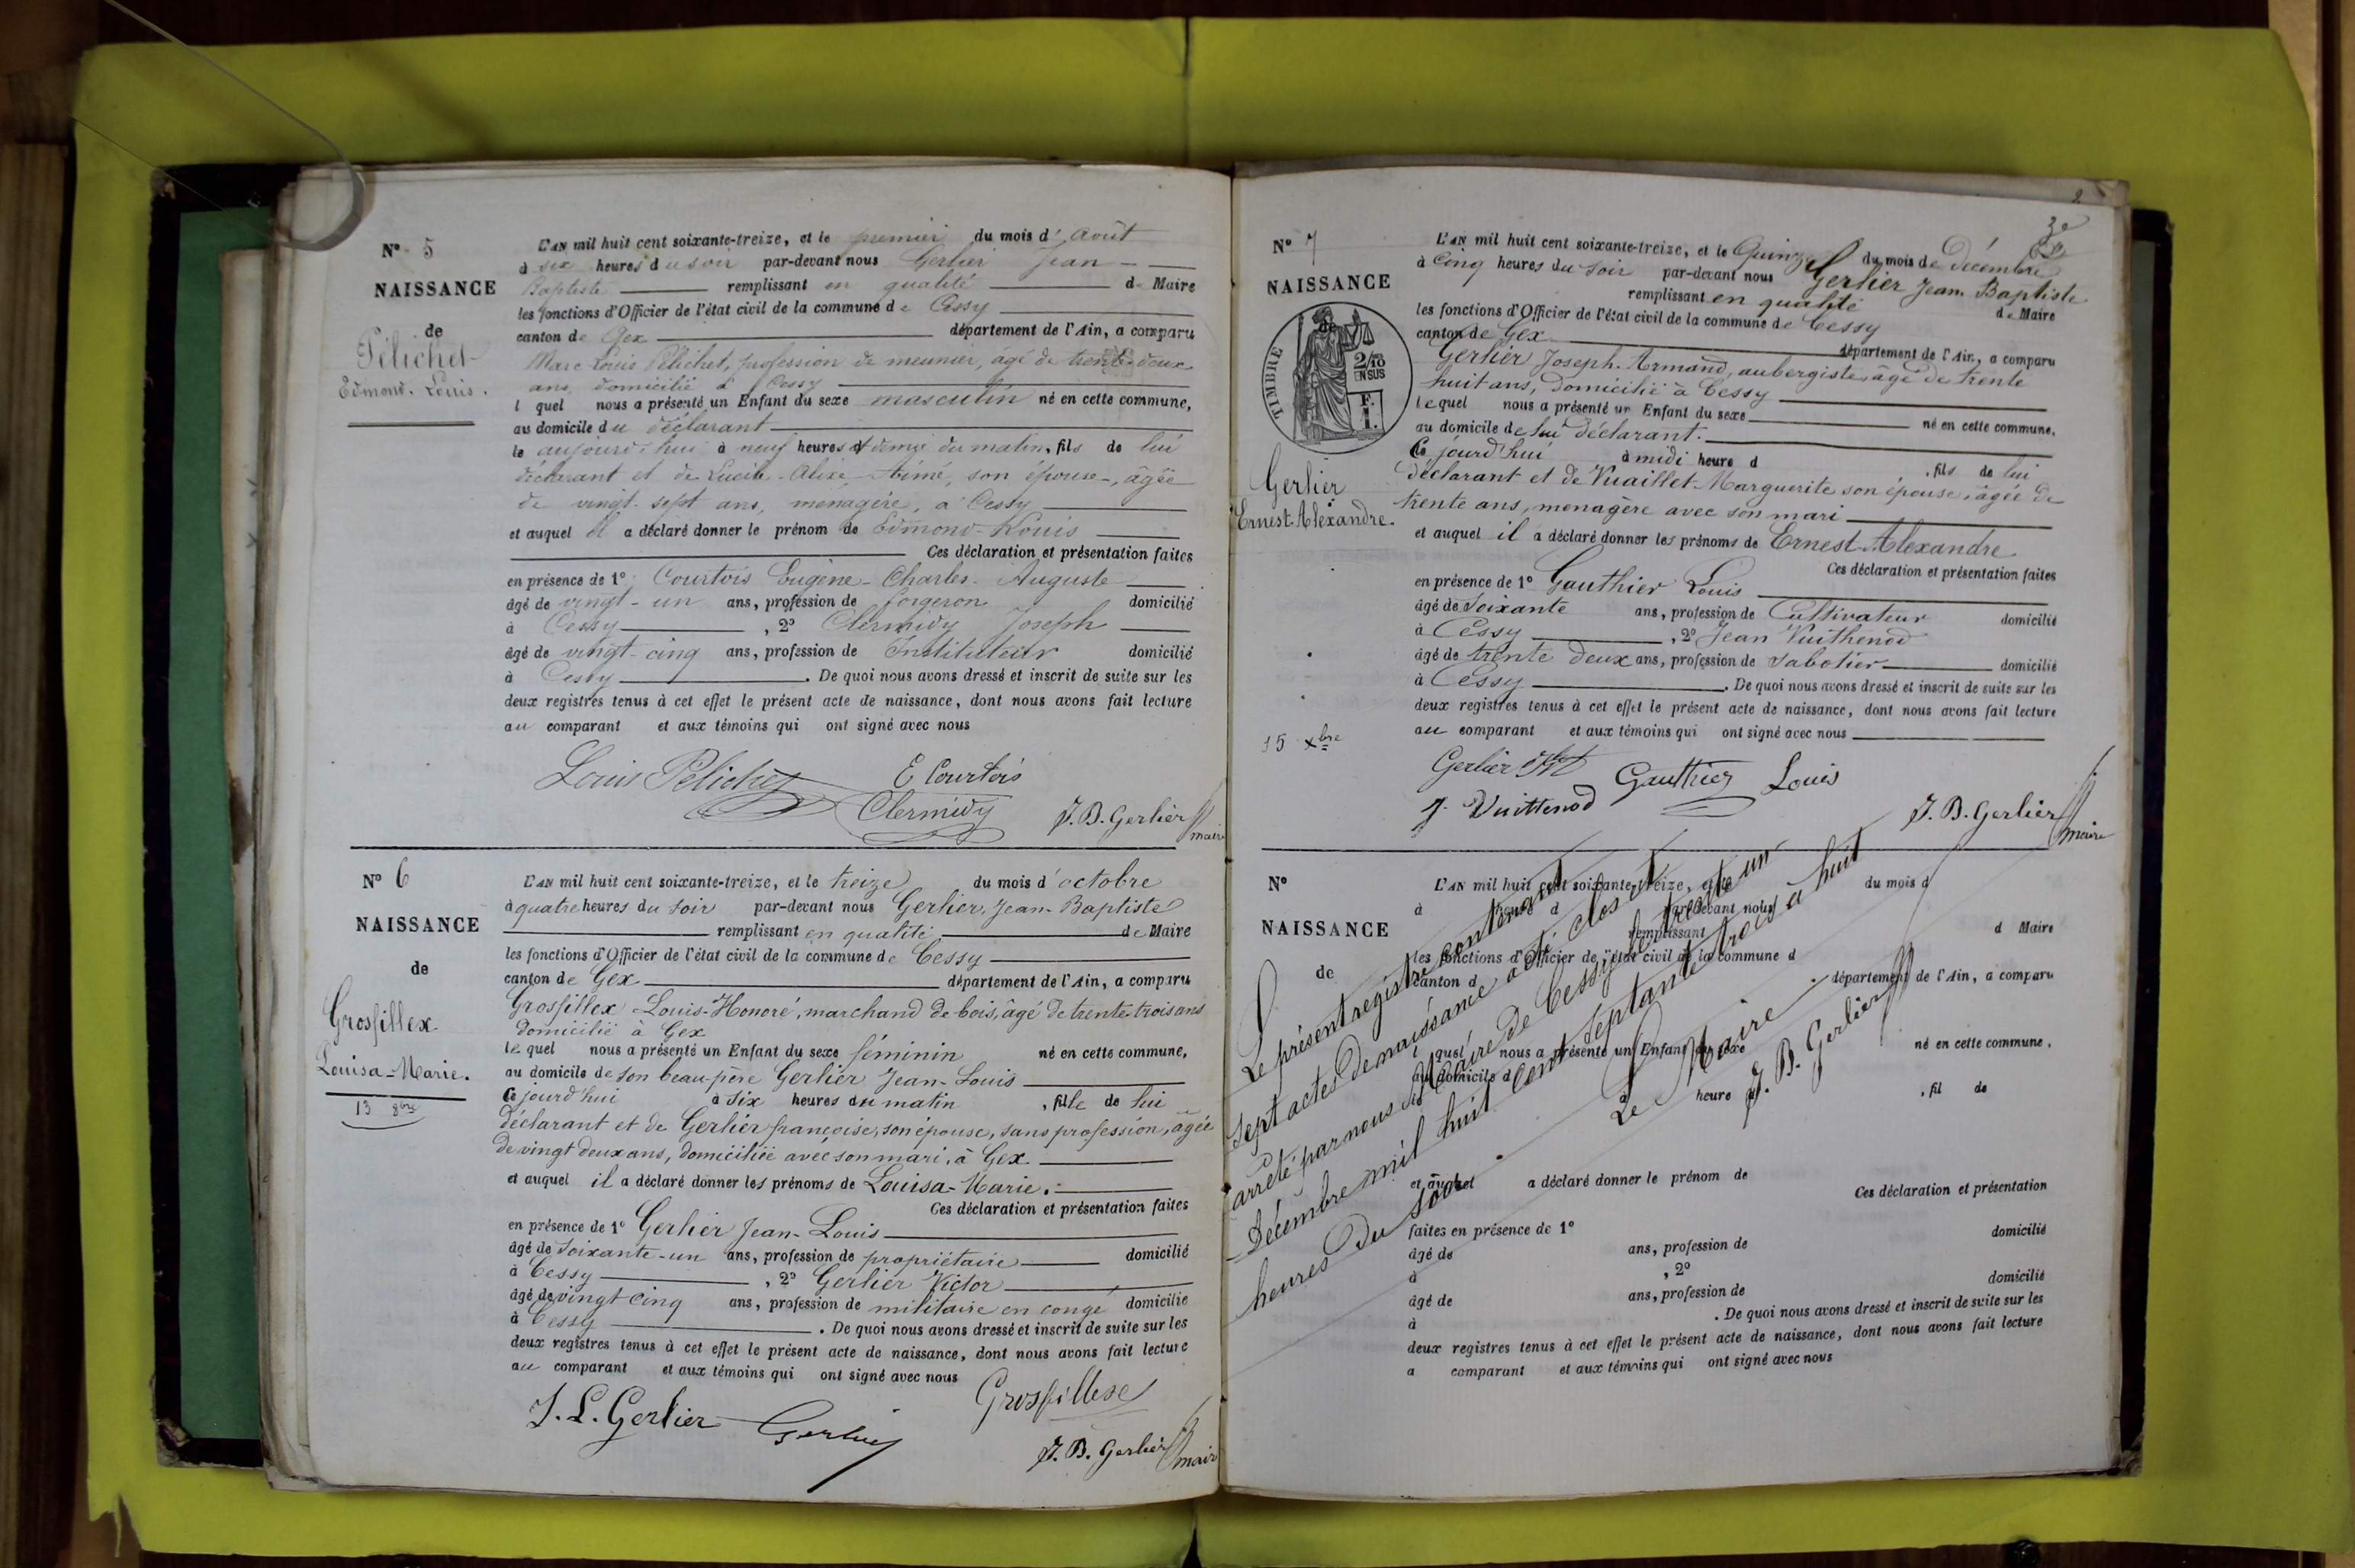 N° 5
NAISSANCE
de
Pélichet
Edmond. Louis.
L'AN mil huit cent soixante-treize, et le premier du mois d'Août
à six heures du soir par-devant nous Gerlier Jean
Baptiste remplissant en qualité de Maire
les fonctions d'Officier de l'état civil de la commune de Cessy
canton de Gex département de l'Ain, a comparu
Marc Louis Pélichet, profession de meunier, âgé de trente-deux
ans, domicilié à Cessy
l quel nous a présenté un Enfant du sexe masculin né en cette commune,
au domicile du déclarant
le aujourd'hui à neuf heures et demie du matin, fils de lui
déclarant et de Lucile-Alixe-Aimé, son épouse, âgée
de vingt-sept ans, menagère, à Cessy
et auquel il a déclaré donner le prénom de Edmond-Louis
Ces déclaration et présentation faites
en présence de 1° Courtois Eugène-Charles-Auguste
âgé de vingt-un ans, profession de forgeron domicilié
à Cessy, 2° Clermidy Joseph
âgé de vingt-cinq ans, profession de Instituteur domicilié
à Cessy. De quoi nous avons dressé et inscrit de suite sur les
deux registres tenus à cet effet le présent acte de naissance, dont nous avons fait lecture
au comparant et aux témoins qui ont signé avec nous
Louis Pélichet E Courtois
Clermidy J. B. Gerlier maire
N° 6
NAISSANCE
de
Grosfillex
Louisa-Marie.
13 8bre
L'AN mil huit cent soixante-treize, et le treize du mois d'octobre
à quatre heures du soir par-devant nous Gerlier, Jean-Baptiste
remplissant en qualité de Maire
les fonctions d'Officier de l'état civil de la commune de Cessy
canton de Gex département de l'Ain, a comparu
Grosfillex Louis-Honoré, marchand de bois, âgé de trente-trois ans
domicilié à Gex
le quel nous a présenté un Enfant du sexe féminin né en cette commune,
au domicile de son beau-père Gerlier Jean-Louis
Ce jourd'hui à six heures du matin, fille de lui
déclarant et de Gerlier françoise, son épouse, sans profession, âgée
de vingt deux ans, domiciliée avec son mari, à Gex
et auquel il a déclaré donner les prénoms de Louisa-Marie.
Ces déclaration et présentation faites
en présence de 1° Gerlier Jean-Louis
âgé de soixante-un ans, profession de propriétaire domicilié
à Cessy, 2° Gerlier Victor
âgé de vingt cinq ans, profession de militaire en congé domicilié
à Cessy. De quoi nous avons dressé et inscrit de suite sur les
deux registres tenus à cet effet le présent acte de naissance, dont nous avons fait lecture
au comparant et aux témoins qui ont signé avec nous
Grosfillex
J. L. Gerlier Gerlier
J. B. Gerlier maire
2
N° 7
NAISSANCE
de
TIMBRE
2/10
EN SUS
F.
1.
Gerlier
Ernest-Alexandre.
15 Xbre
L'AN mil huit cent soixante-treize, et le Quinze du mois de décembre
à Cinq heures du soir par-devant nous Gerlier Jean Baptiste
remplissant en qualité de Maire
les fonctions d'Officier de l'état civil de la commune de Cessy
canton de Gex département de l'Ain, a comparu
Gerlier Joseph-Armand, aubergiste, âgé de trente
huit ans, domicilié à Cessy
lequel nous a présenté un Enfant du sexe né en cette commune,
au domicile de lui déclarant.
Ce jourd'hui à midi heure d, fils de lui
déclarant et de Vuaillet-Marguerite son épouse, âgée de
trente ans, menagère avec son mari
et auquel il a déclaré donner les prénoms de Ernest-Alexandre
Ces déclaration et présentation faites
en présence de 1° Gauthier Louis
âgé de soixante ans, profession de Cultivateur domicilié
à Cessy, 2° Jean Vuithenod
âgé de trente deux ans, profession de Sabotier domicilié
à Cessy. De quoi nous avons dressé et inscrit de suite sur les
deux registres tenus à cet effet le présent acte de naissance, dont nous avons fait lecture
au comparant et aux témoins qui ont signé avec nous
Gerlier Gauthier Louis
J. Vuittenod J. B. Gerlier maire
N°
NAISSANCE
de
L'AN mil huit cent soixante-treize, et le du mois d
à heure d par-devant nous
remplissant d Maire
les fonctions d'Officier de l'état civil de la commune d
canton d département de l'Ain, a comparu
l quel nous a présenté un Enfant du sexe né en cette commune,
au domicile d
le à heure d, fil de
et auquel a déclaré donner le prénom de
Ces déclaration et présentation
faites en présence de 1° domicilié
âgé de ans, profession de
à, 2° domicilié
âgé de ans, profession de
à. De quoi nous avons dressé et inscrit de suite sur les
deux registres tenus à cet effet le présent acte de naissance, dont nous avons fait lecture
a comparant et aux témoins qui ont signé avec nous
Le présent registre contenant
sept actes de naissance a été clos et
arrêté par nous Maire de Cessy le trente un
Décembre mil huit cent septante trois à huit
heures du soir.
Le Maire
J. B. Gerlier